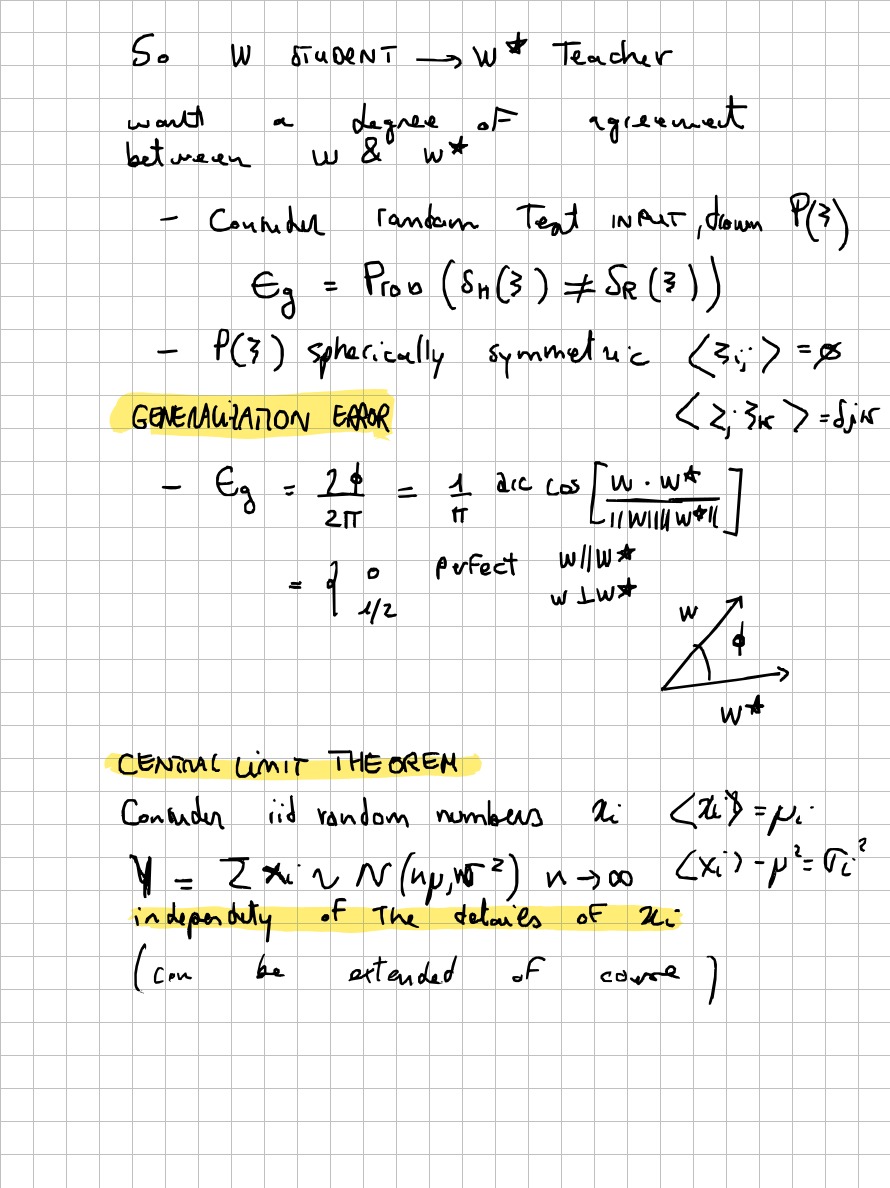 So W STUDENT → W* Teacher
want a degree of agreement
between w & w*
- Consider random Test INPUT, drawn P(ξ)
ϵg = Prob (SH(ξ) ≠ SR(ξ))
- P(ξ) spherically symmetric <ξj> = 0
GENERALIZATION ERROR <ξj ξk> = δjk
- ϵg = 2ϕ/2π = 1/π arc cos [W · W*/||W||||W*||]
= { 0 perfect W//W*
1/2 W⊥W*
w ϕ
W*
CENTRAL LIMIT THEOREM
Consider iid random numbers xi <xi> = μi
Y = Σ xi ~ N(nμ, nσ²) n → ∞ <xi> - μ² = σi²
independety of The details of xi
(can be extended of course)